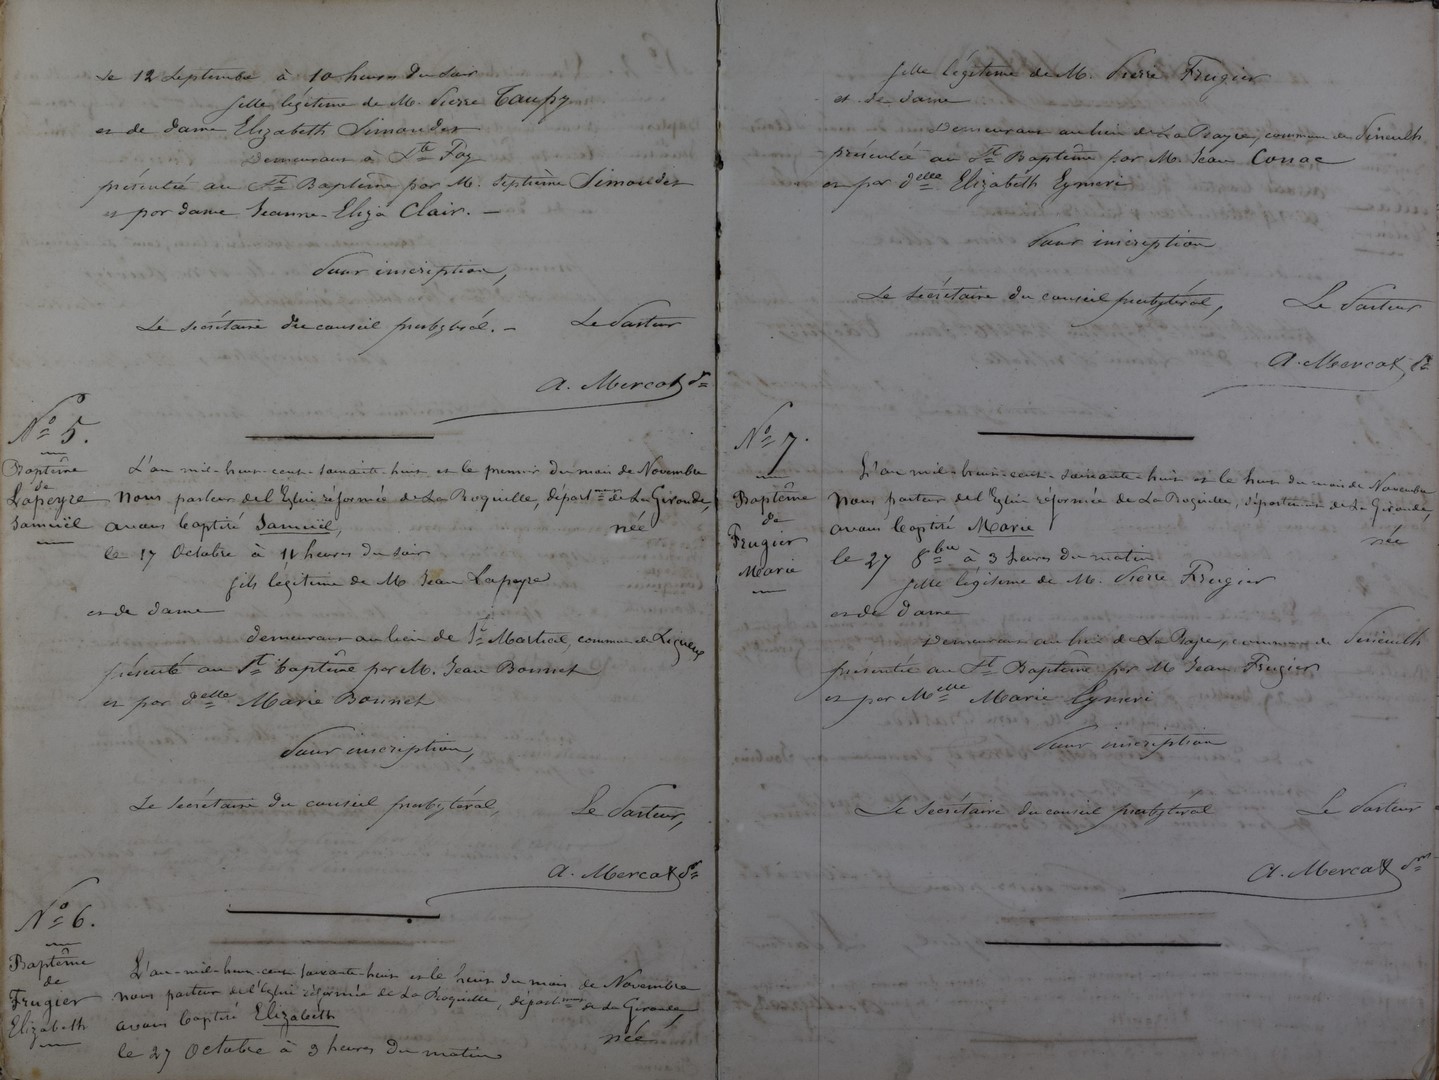 le 12 Septembre à 10 heures du soir
fille légitime de M. Pierre Taupy
et de dame Elizabeth Simondet
Demeurant à Ste Foy
présentée au St Baptême par M. Septime Simondet
et par dame Jeanne-Eliza Clair. —
Pour inscription,
Le secrétaire du conseil presbytéral. — Le Pasteur
A. Mercat
No 5.
Baptême
de
Lapeyre
Samuël
L'an mil-huit-cent-soixante-huit et le premier du mois de Novembre
Nous pasteur de l'Eglise réformée de La Roquille, départmt de La Gironde,
avons baptisé Samuël, née
le 17 Octobre à 11 heures du soir
fils légitime de M. Jean Lapeyre
et de dame
demeurant au lieu de St Martial, commune de Ligueux
présenté au St baptême par M. Jean Bonnet
et par delle Marie Bonnet
Pour inscription,
Le secrétaire du conseil presbytéral, Le Pasteur,
A. Mercat
No 6.
Baptême
de
Frugier
Elizabeth
L'an-mil-huit-cent soixante-huit et le huit du mois de Novembre
nous pasteur de l'Eglise réformée de La Roquille, départmt de La Gironde,
avons baptisé Elizabeth née
le 27 Octobre à 3 heures du matin
fille légitime de M. Pierre Frugier
et de dame
Demeurant au lieu de La Raye, commune de Pineuilh
présentée au St Baptême par M. Jean
et par delle Elizabeth Eymeri
Pour inscription
Le secrétaire du conseil presbytéral, Le Pasteur
A. Mercat
No 7.
Baptême
de
Frugier
Marie
L'an mil-huit-cent-soixante-huit et le huit du mois de Novembre
Nous pasteur de l'Eglise réformée de La Roquille, département de La Gironde,
avons baptisé Marie née
le 27 8bre à 3 heures du matin
fille légitime de M. Pierre Frugier
et de dame
Demeurant au lieu de La Raye, commune de Pineuilh
présentée au St Baptême par M Jean Frugier
et par Melle Marie Eymeri
Pour inscription
Le secrétaire du conseil presbytéral Le Pasteur
A. Mercat